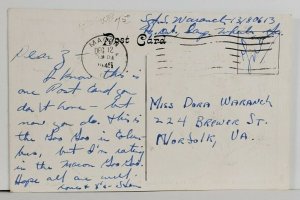 Post Card
MA
DEC 12
1941
Dear Z -
I know this is
one Post Card you
don't have - but
now you do. This is
the Goo Goo in Colum-
bus, but I'm eating
in the Macon Goo Goo.
Hope all are well.
Love
Miss Dora Waranch
224 Brewer St.
Norfolk, Va.